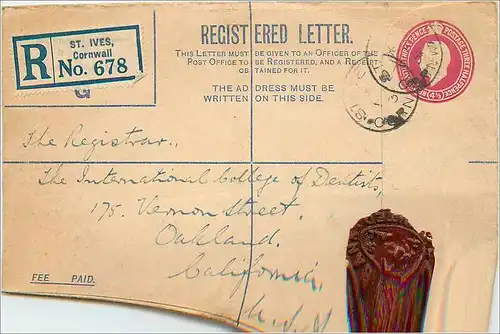 ST. IVES,
Cornwall
R No. 678
REGISTERED LETTER.
THIS LETTER MUST BE GIVEN TO AN OFFICER OF THE
POST OFFICE TO BE REGISTERED, AND A RECEIPT
OBTAINED FOR IT.
THE ADDRESS MUST BE
WRITTEN ON THIS SIDE.
G
The Registrar,
The International College of Dentists,
175, Vernon Street,
Oakland.
California.
U.S.A
FEE PAID.